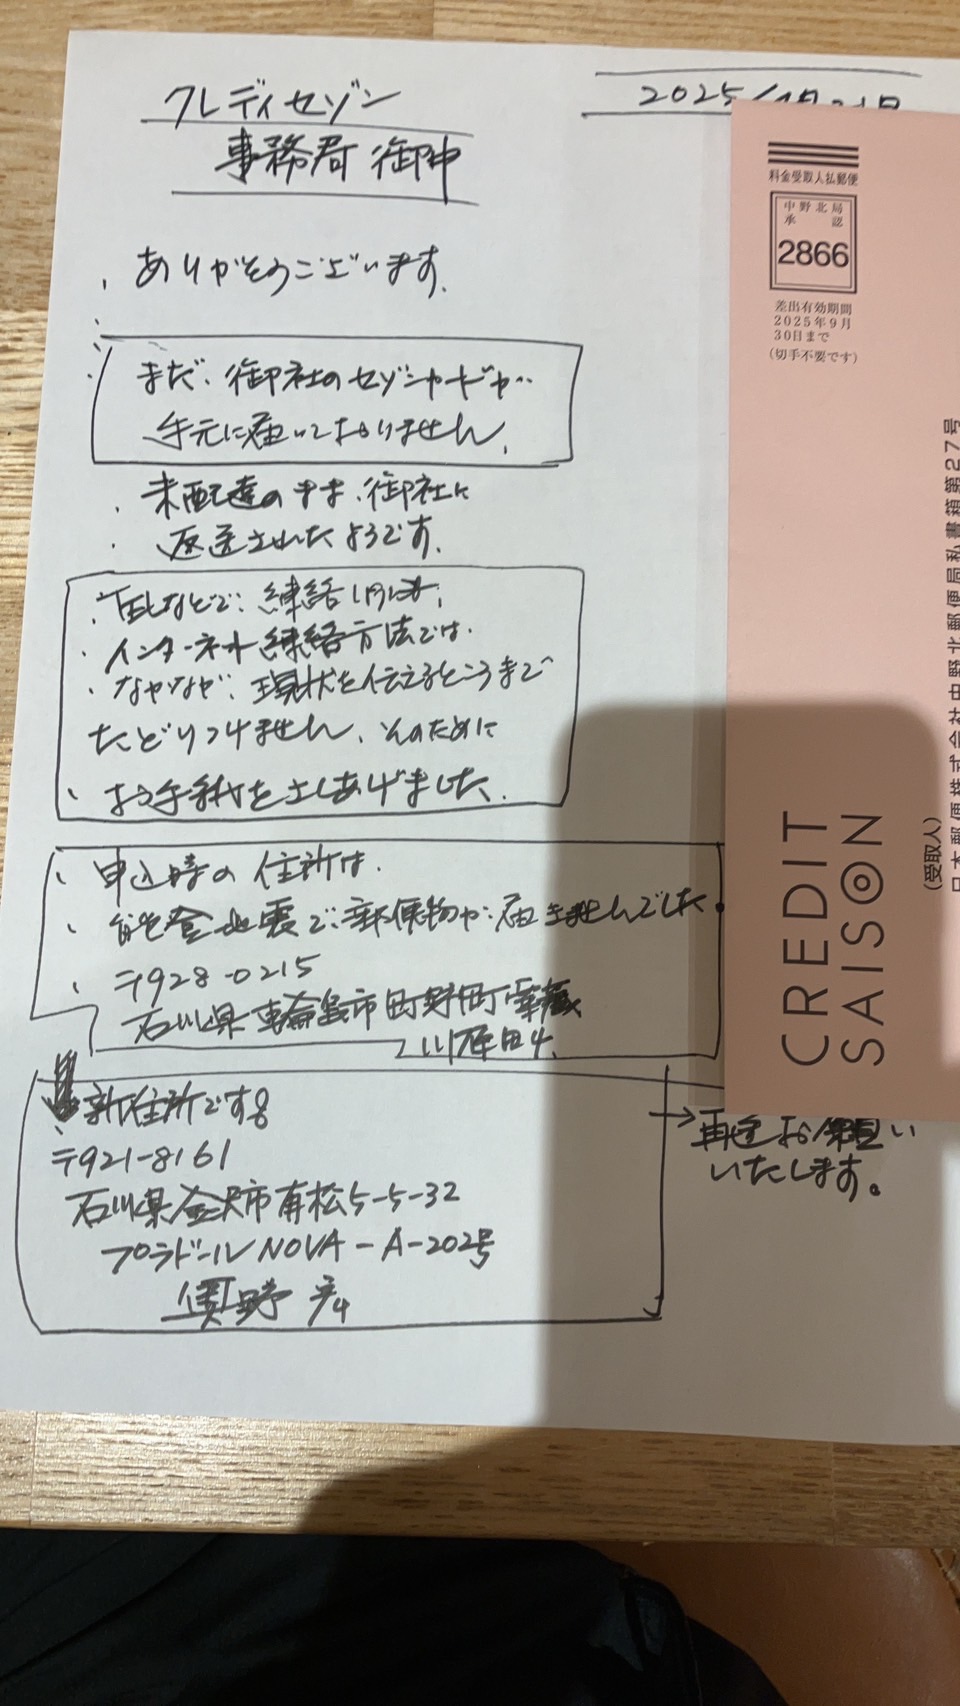 クレディセゾン
事務局 御中
2025/
ありがとうございます.
まだ、御社のセゾンカードが
手元に届いておりません.
未配達のまま、御社に
返送されたようです.
などで、連絡
インターネット連絡方法では.
なかなか、現状を伝えるところまで
たどりつけません、そのために
お手紙を さしあげました.
申込時の 住所は.
能登地震で、郵便物が届きませんでした.
〒928-0215
石川県 輪島市 町野町 粟蔵
川原田4
新住所です。
〒921-8161
石川県金沢市有松5-5-32
プラドールNOVA-A-202号
→再送お願い
いたします。
料金受取人払郵便
中野北局
承認
2866
差出有効期間
2025年9月
30日まで
(切手不要です)
日本郵便株式会社中野北郵便局私書箱第27号
(受取人)
CREDIT
SAISON